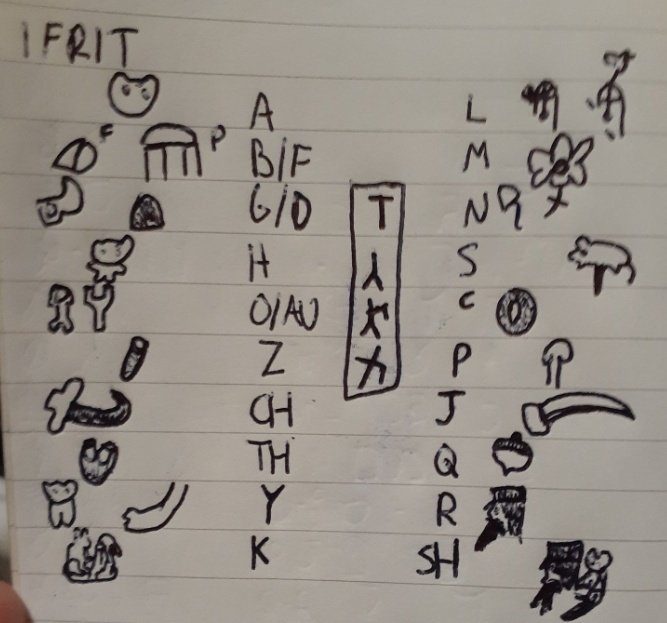 IFRIT
A L
F P B/F M
G/D T N
H S
O/AU c
Z P
CH J
TH Q
Y R
K SH